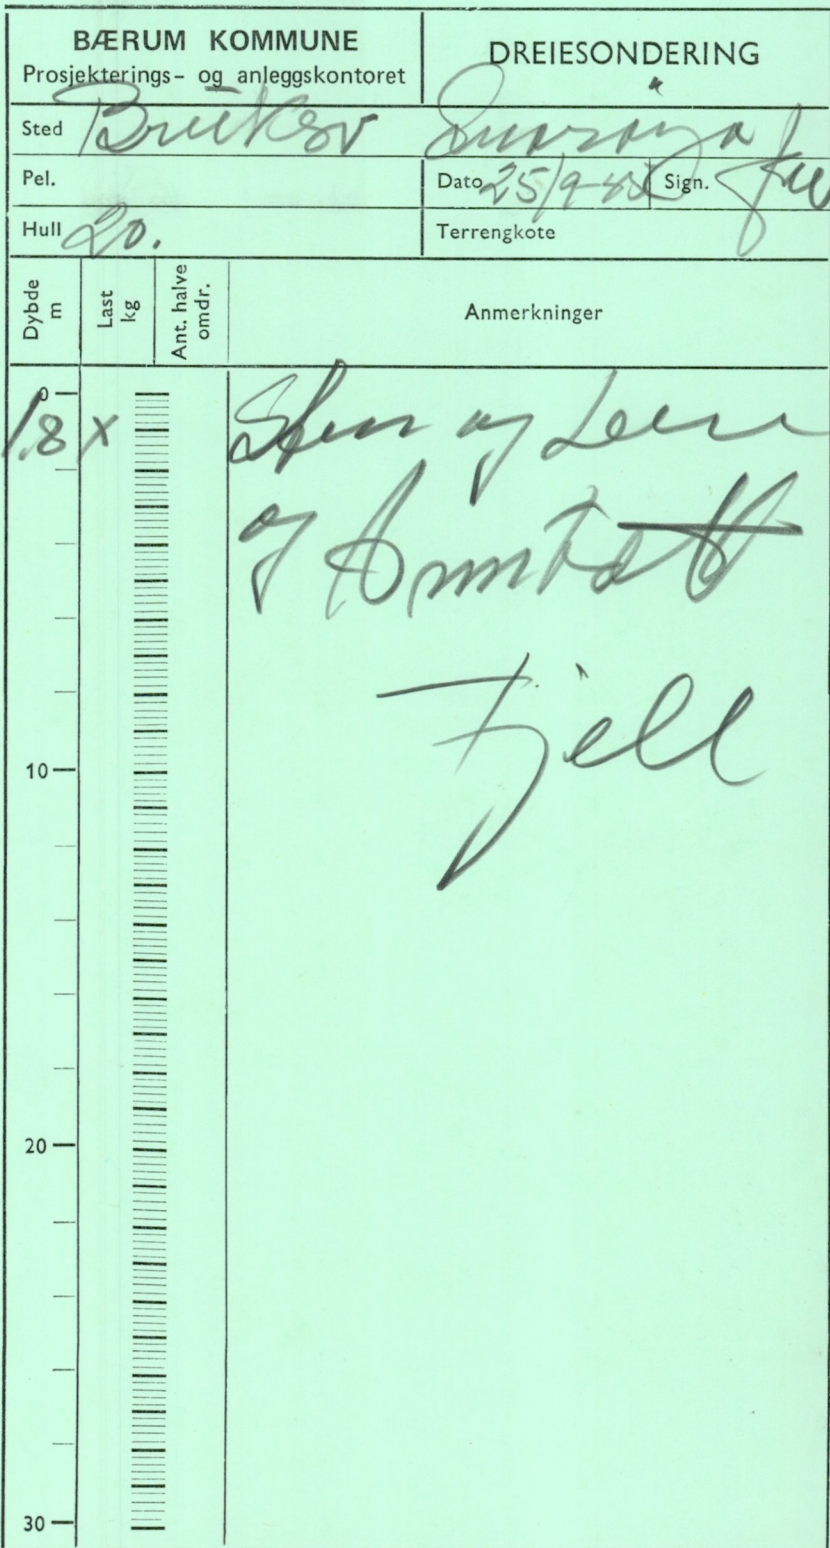 BÆRUM KOMMUNE
Prosjekterings- og anleggskontoret
DREIESONDERING
Sted Snarøya
Pel.
Dato 25/9- Sign.
Hull 20.
Terrengkote
Dybde m
Last kg
Ant. halve omdr.
Anmerkninger
0
1.8 X
Sten og Leire
og
Fjell
10
20
30